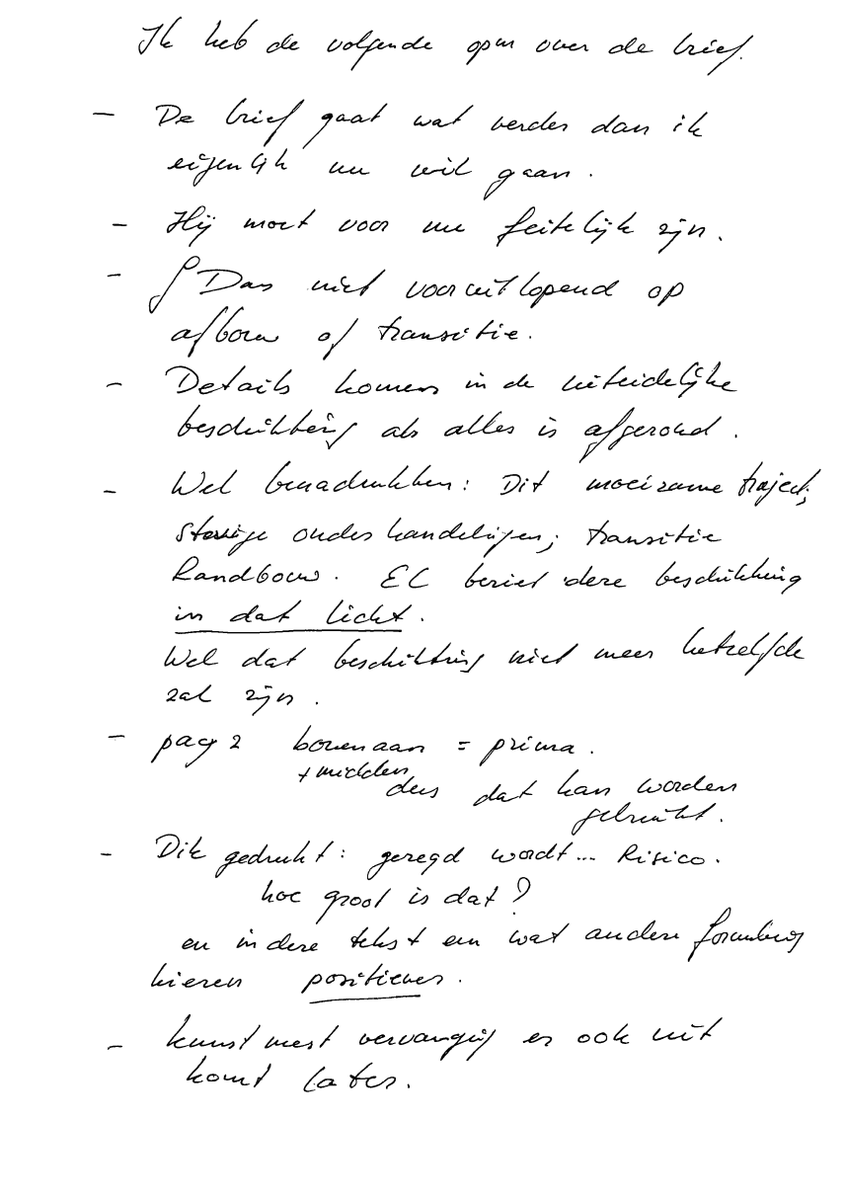 Ik heb de volgende opm over de brief.
- De brief gaat wat verder dan ik
eigenlijk nu wil gaan.
- Hij moet voor nu feitelijk zijn.
- Dus niet vooruitlopend op
afbouw of transitie.
- Details komen in de uiteindelijke
beschikking als alles is afgerond.
- Wel benadrukken: Dit moeizame traject;
stevige onderhandelingen; transitie
landbouw. EC beziet deze beschikking
in dat licht.
Wel dat beschikking niet meer hetzelfde
zal zijn.
- pag 2 bovenaan = prima.
+ midden
dus dat kan worden
gebruikt.
- Dik gedrukt: geregd wordt... Risico.
hoe groot is dat?
en in deze tekst een wat andere formulering
kiezen positiever.
- kunstmest vervanging er ook uit
komt later.